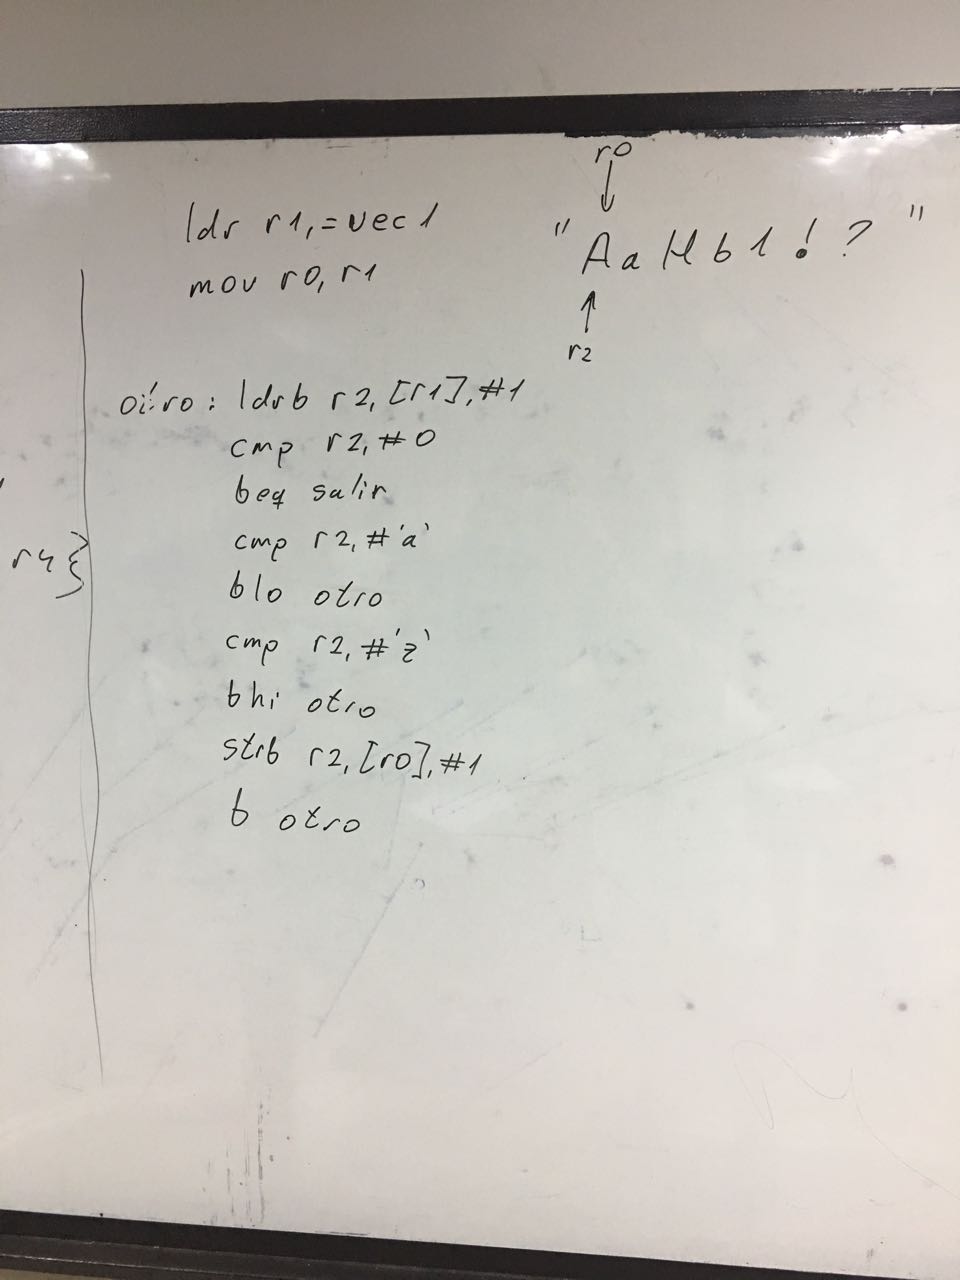 r0
ldr r1,=vec1
"AaHb1!?"
mov r0, r1
r2
otro: ldrb r2, [r1],#1
cmp r2, #0
beq salir
cmp r2, #'a'
r4}
blo otro
cmp r2, #'z'
bhi otro
strb r2, [r0], #1
b otro